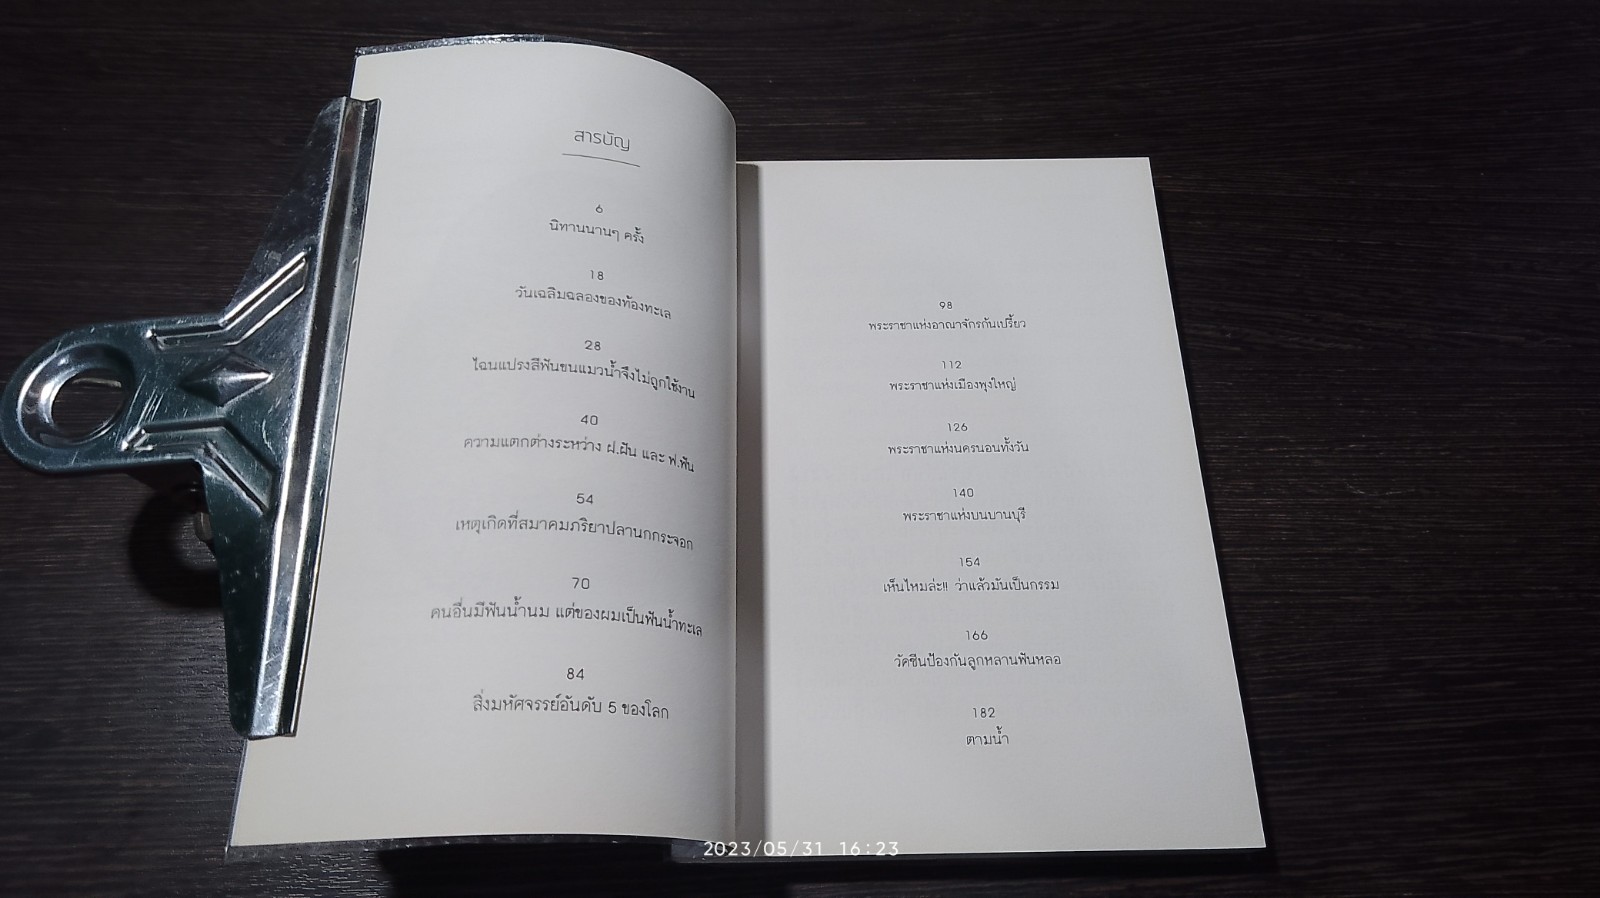 สารบัญ
6
นิทานนานๆ ครั้ง
18
วันเฉลิมฉลองของท้องทะเล
28
ไฉนแปรงสีฟันขนแมวน้ำจึงไม่ถูกใช้งาน
40
ความแตกต่างระหว่าง ฝ.ฝัน และ ฟ.ฟัน
54
เหตุเกิดที่สมาคมภริยาปลานกกระจอก
70
คนอื่นมีฟันน้ำนม แต่ของผมเป็นฟันน้ำทะเล
84
สิ่งมหัศจรรย์อันดับ 5 ของโลก
98
พระราชาแห่งอาณาจักรก้นเปรี้ยว
112
พระราชาแห่งเมืองพุงใหญ่
126
พระราชาแห่งนครนอนทั้งวัน
140
พระราชาแห่งบนบานบุรี
154
เห็นไหมล่ะ!! ว่าแล้วมันเป็นกรรม
166
วัคซีนป้องกันลูกหลานฟันหลอ
182
ตามน้ำ
2023/05/31 16:23